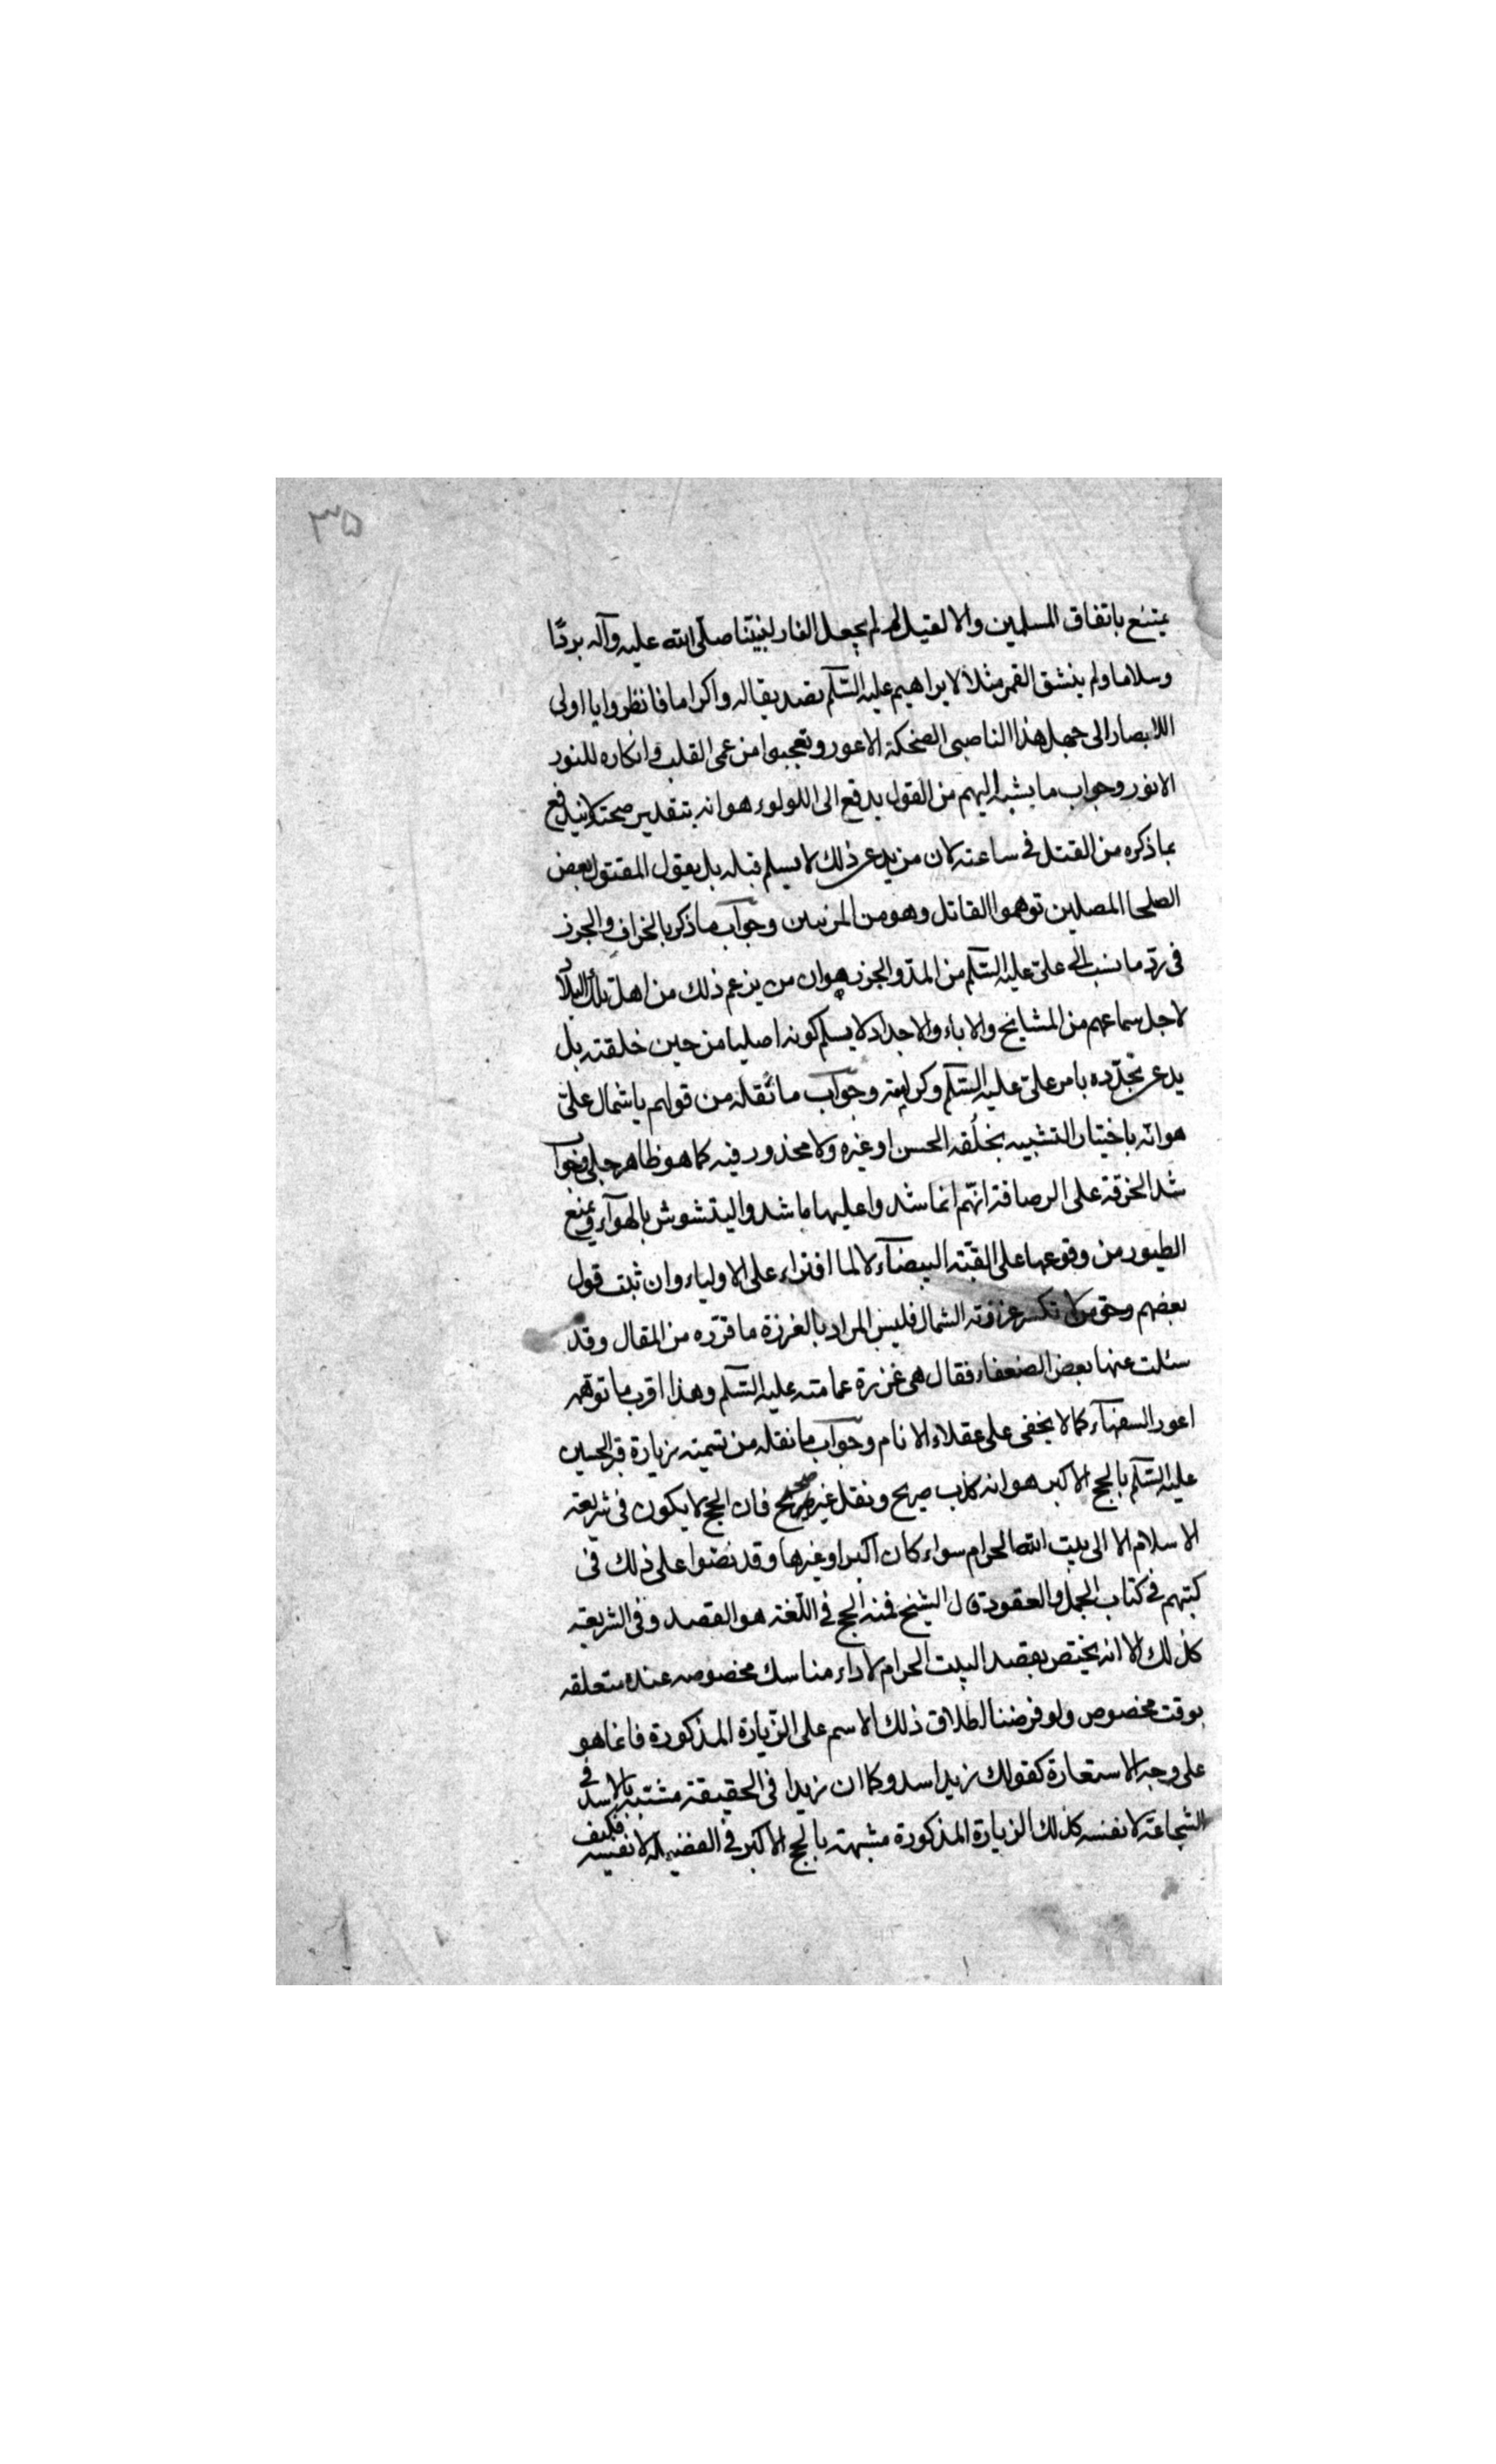 ٣٥
يمتنع باتفاق المسلمين والا لقيل لم لم يجعل النار لنبيّنا صلّى الله عليه وآله بردًا
وسلاما ولم ينشق القمر مثلا لابراهيم عليه السّلام تصديقا له واكراما فانظروا يا اولى
الابصار الى جهل هذا الناصبى الضحكة الاعور وتعجبوا من عمى القلب وانكاره للنور
الانور وجواب ما يشبه اليهم من القول يدفع الى اللولوء هو انه بتقدير صحته لا يندفع
بما ذكره من القتل فى ساعته لان من يدعى ذلك لا يسلم قبله بل يقول المقتول بعض
الصلحا المصلين توهموا القاتل وهو من المزنبين وجواب ما ذكر بالخراف والجزر
فى ردّ ما نسب الى علىّ عليه السّلم من المدّ والجزر هو ان من يزعم ذلك من اهل تلك البلاد
لاجل سماعهم من المشايخ والاباء والاجداد لا يسلم كونه اصليا من حين خلقته بل
يدعى تجدّده بامر علىّ عليه السّلم وكراميته وجواب ما نقله من قولهم يا شمال علىّ
هو انّه باختيار التشبيه بخلقه الحسن او غيره ولا محذور فيه كما هو ظاهر جلى وجواب
شد الخرقة على الرصافة انهّم انما شدوا عليها ما شدوا ليتشوش بالهوآء ويمنع
الطيور من وقوعها على القبّته البيضآء لا لما افتراء على الاولياء وان ثبت قول
بعضهم وحق من لا تكسر غرزته الشمال فليس المراد بالغرزة ما قرّره من المقال وقد
سئلت عنها بعض الضعفاء فقال هى غرزة عمامته عليه السّلم وهذا اقرب ما توهّمه
اعور السفهآء كما لا يخفى على عقلاء الانام وجواب ما نقله من تسميته زيارة قبر الحسين
عليه السّلم بالحج الاكبر هو انه كذب صريح ونقل غير صحيح فان الحج لا يكون فى شريعة
الاسلام الا الى بيت الله الحرام سواء كان اكبر او غيرها وقد نصّوا على ذلك فى
كتبهم فى كتاب الجمل والعقود قال الشيخ فمنه الحج فى اللّغة هو القصد وفى الشريعة
كذلك الا انه يختص بقصد البيت الحرام لاداء مناسك مخصوصه عنده متعلقه
بوقت مخصوص ولو فرضنا اطلاق ذلك الاسم على الزّيارة المذكورة فانما هو
على وجه الاستعارة كقولك زيد اسد وكما ان زيدا فى الحقيقة مشتبه بالاسد فى
الشجاعة لا نفسه كذلك الزيارة المذكورة مشبهة بالحج الاكبر فى الفضيلة لا نفسه فكيف